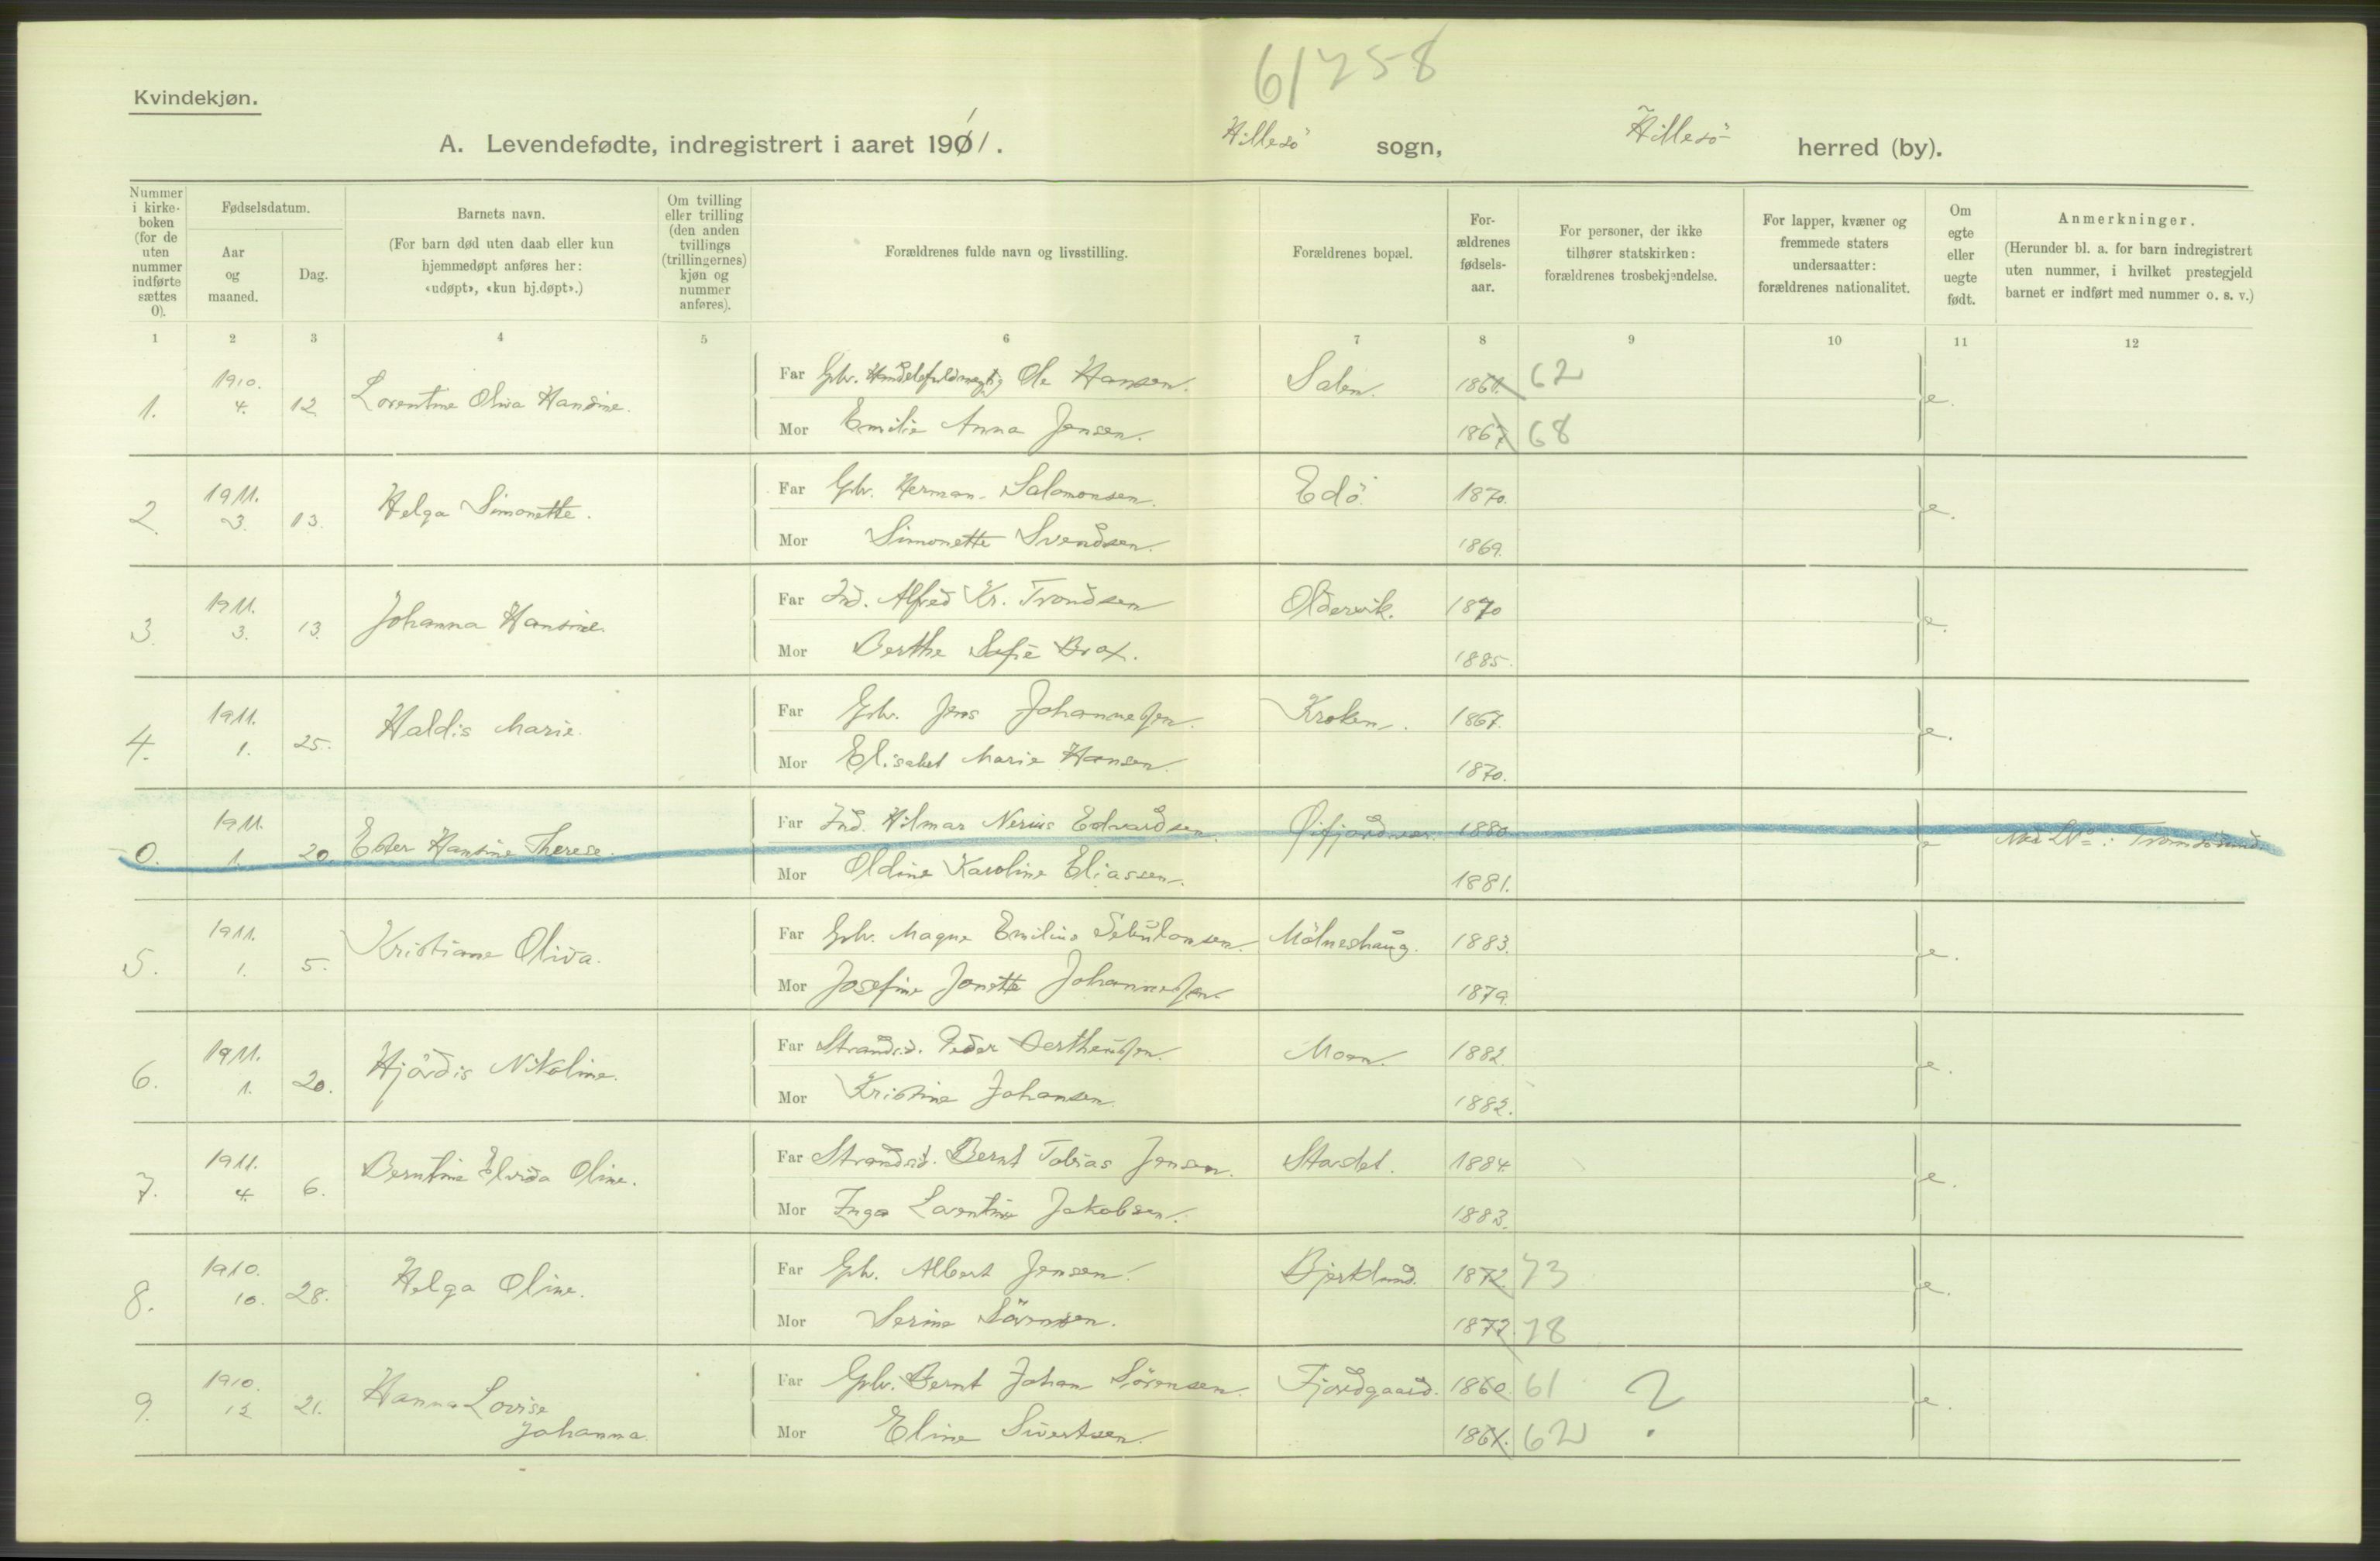 61258
Kvindekjøn.
A. Levendefødte, indregistrert i aaret 1901. Hillesö sogn, Hillesö herred (by).
Nummer i kirke-boken (for de uten nummer indførte sættes 0).
Fødselsdatum.
Aar og maaned.
Dag.
Barnets navn.
(For barn død uten daab eller kun hjemmedøpt anføres her: «udøpt», «kun hj.døpt».)
Om tvilling eller trilling (den anden tvillings (trillingernes) kjøn og nummer anføres).
Forældrenes fulde navn og livsstilling.
Forældrenes bopæl.
For-ældrenes fødsels-aar.
For personer, der ikke tilhører statskirken: forældrenes trosbekjendelse.
For lapper, kvæner og fremmede staters undersaatter: forældrenes nationalitet.
Om egte eller uegte født.
Anmerkninger.
(Herunder bl. a. for barn indregistrert uten nummer, i hvilket prestegjeld barnet er indført med nummer o. s. v.)
1 2 3 4 5 6 7 8 9 10 11 12
1. 1910. 4. 12 Lorentine Oliva Hansine. Far Gbr. Handelsfuldmegtig Ole Hansen. Salen. 1861. 62 e.
Mor Emilie Anna Jensen. 1867 68
2. 1911. 3. 13. Helga Simonette. Far Gbr. Herman Salomonsen. Edö. 1870. e.
Mor Simonette Svendsen. 1869.
3. 1911. 3. 13. Johanna Hansine. Far Ind. Alfred Kr. Trondsen Oldervik. 1870 e.
Mor Berthe Sofie Brox. 1885.
4. 1911. 1. 25. Haldis Marie. Far Gbr. Jens Johannessen. Kroken. 1867. e.
Mor Elisabet Marie Hansen. 1870.
0. 1911. 1. 20. Ester Hansine Therese. Far Ind. Hilmar Nerius Edvardsen. Øifjordvær. 1880. Med No: Tromsösund.
Mor Oldine Karoline Eliassen. 1881.
5. 1911. 1. 5. Kristiane Oliva. Far Gbr. Magne Emilius Sebulonsen. Mölneshaug. 1883. e.
Mor Josefine Jonette Johannessen. 1879.
6. 1911. 1. 20. Hjördis Nikoline. Far Strands. Peder Bertheussen. Moen. 1882. e.
Mor Kristine Johansen. 1882.
7. 1911. 4. 6. Berntine Elvida Oline. Far Strandsd. Bernt Tobias Jensen. Stardet. 1884. e.
Mor Inga Lorentine Jakobsen. 1883.
8. 1910. 10. 28. Helga Oline. Far Gbr. Albert Jensen. Bjerklund. 1872. 73 e.
Mor Serine Sörensen. 1877. 78
9. 1910. 12 21. Hanna Lovise Johanna. Far Gbr. Bernt Johan Sörensen. Fjordgaard. 1860. 61 ? e.
Mor Eline Sivertsen. 1861. 62